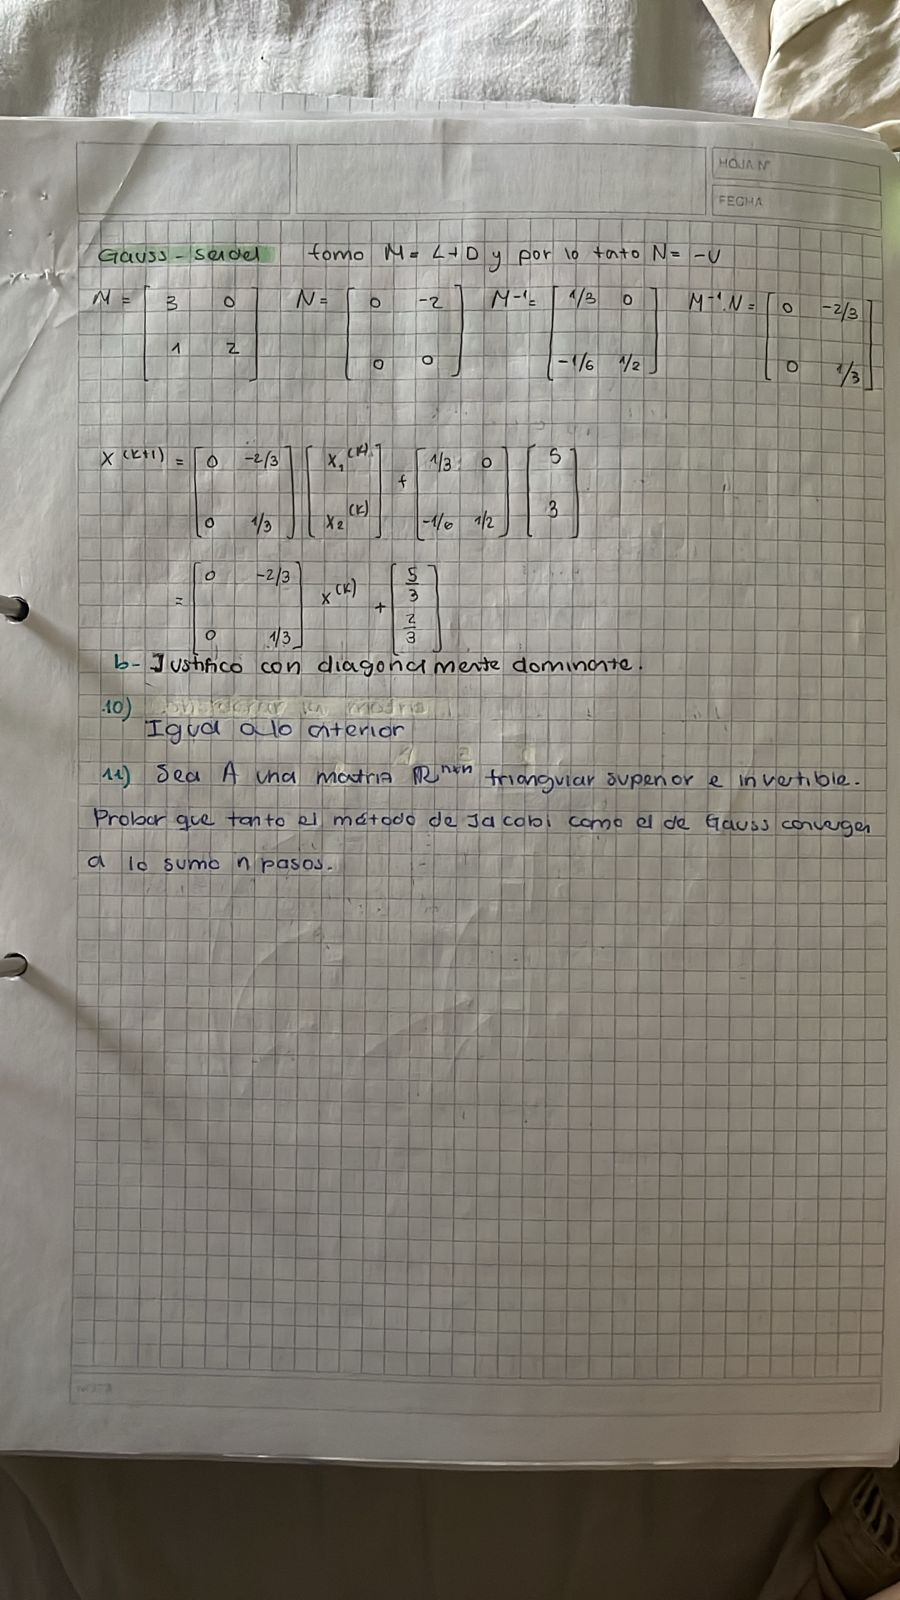 HOJA Nº
FECHA
Gauss-seidel tomo M = L+D y por lo tato N = -U
M = [3 0; 1 2] N = [0 -2; 0 0] M⁻¹ = [1/3 0; -1/6 1/2] M⁻¹.N = [0 -2/3; 0 1/3]
X^(k+1) = [0 -2/3; 0 1/3] [x₁^(k); x₂^(k)] + [1/3 0; -1/6 1/2] [5; 3]
= [0 -2/3; 0 1/3] x^(k) + [5/3; 2/3]
b- Justifico con diagonalmente dominante.
10)
Igual a lo anterior
11) Sea A una matria ℝ^(n×n) triangular superior e invertible.
Probar que tanto el método de Jacobi como el de Gauss convergen
a lo sumo n pasos.
NOTA